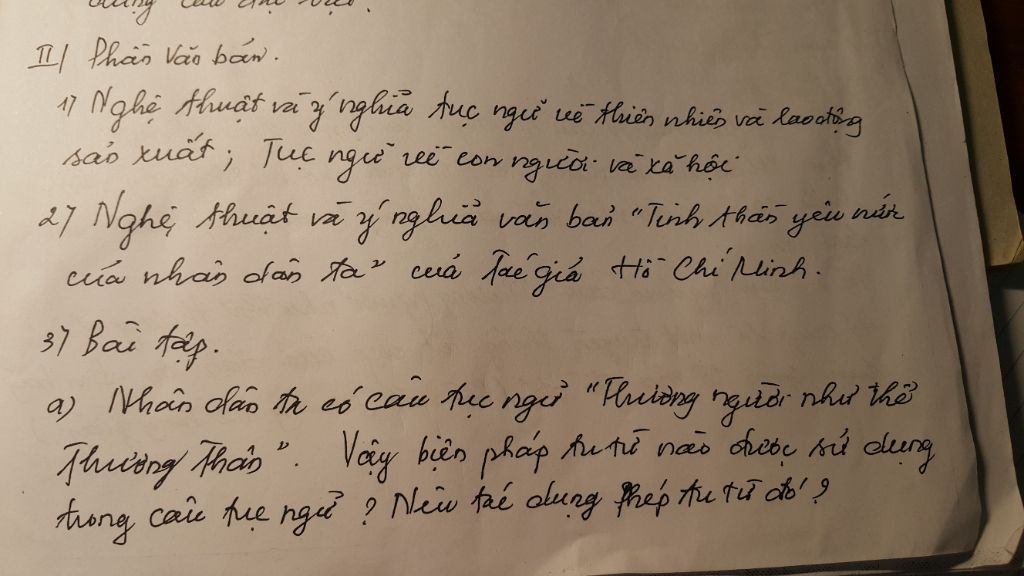 dụng câu đặc biệt.
II/ Phần Văn bản.
1) Nghệ thuật và ý nghĩa tục ngữ về thiên nhiên và lao động
sản xuất; Tục ngữ về con người và xã hội
2) Nghệ thuật và ý nghĩa văn bản "Tinh thần yêu nước
của nhân dân ta" của Tác giả Hồ Chí Minh.
3) Bài tập.
a) Nhân dân ta có câu tục ngữ "Thương người như thể
Thương Thân". Vậy biện pháp tu từ nào được sử dụng
trong câu tục ngữ? Nêu tác dụng phép tu từ đó?